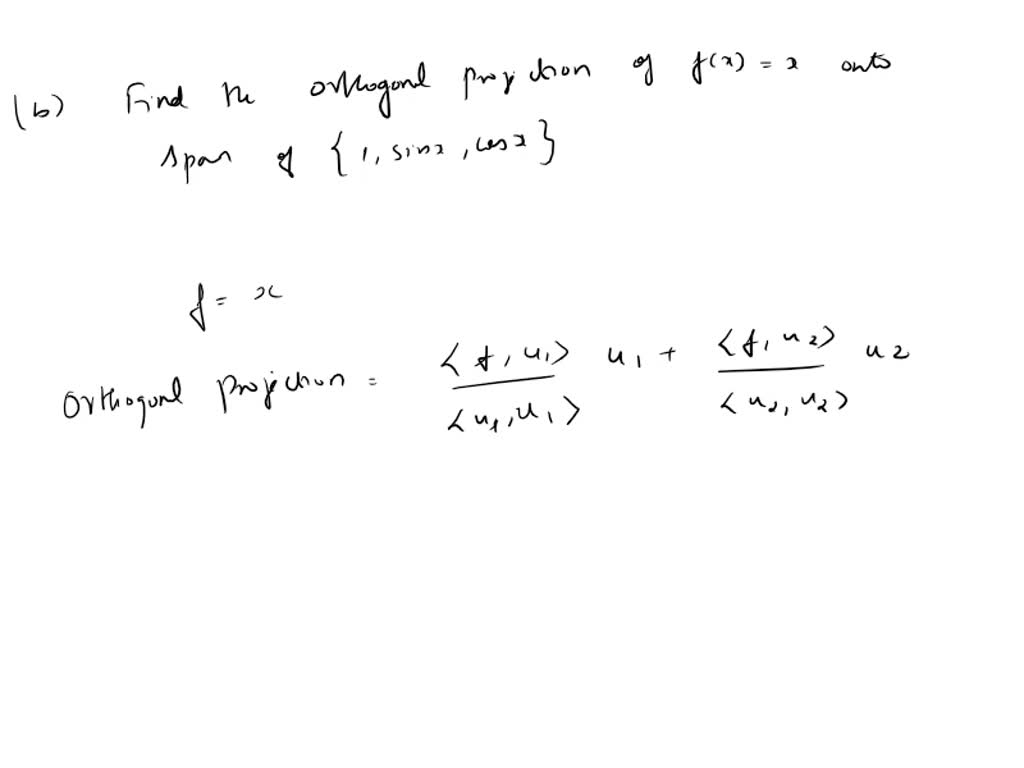 (b) Find the orthogonal projection of f(x) = x onto
span of {1, sinx, cosx}
f = x
Orthogonal projection = <f, u1> / <u1, u1> u1 + <f, u2> / <u2, u2> u2